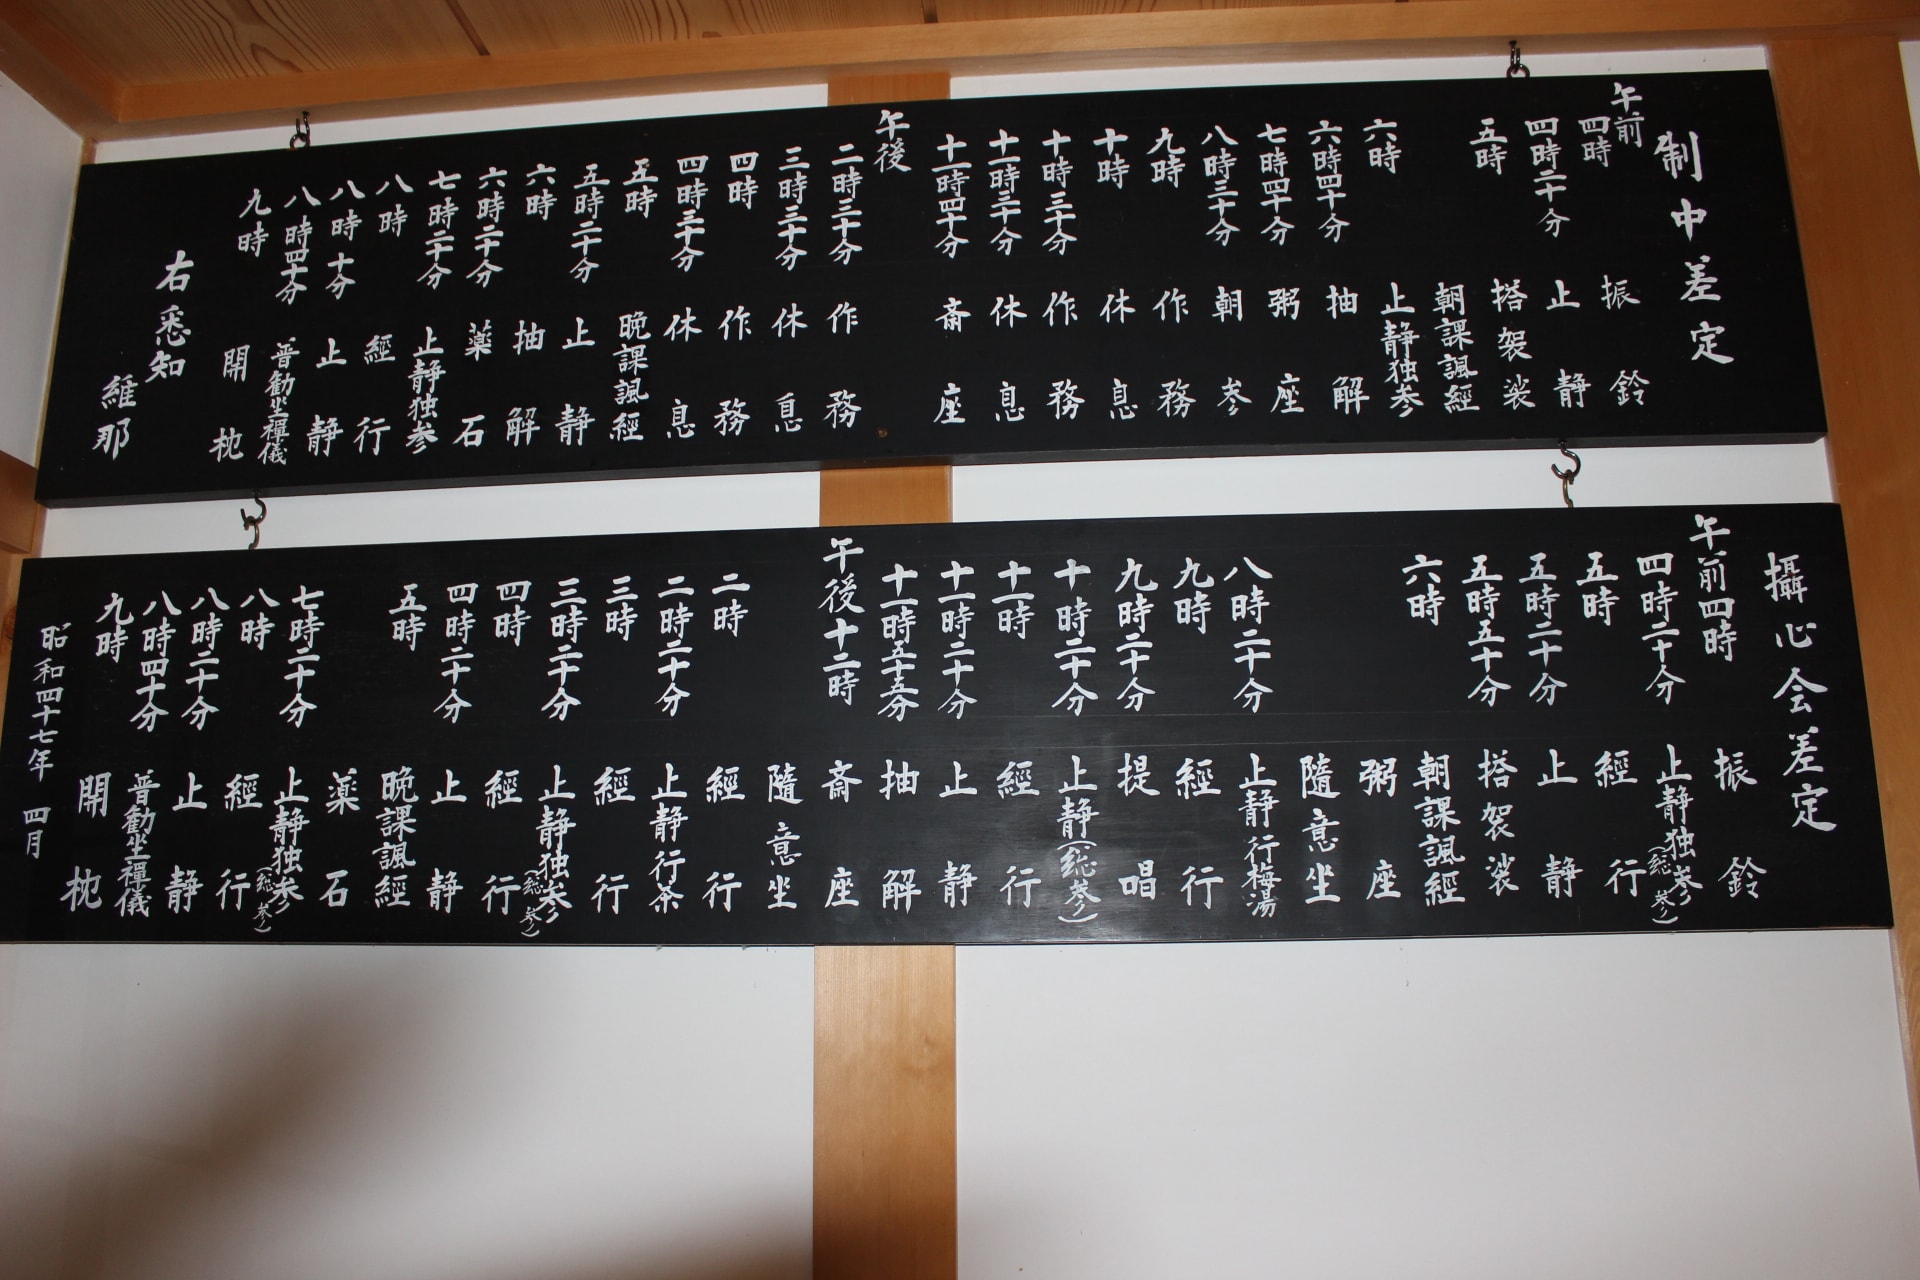 制中差定
午前
四時 振鈴
四時二十分 止静
五時 搭袈裟
朝課諷経
六時 止静独参
六時四十分 抽解
七時四十分 粥座
八時三十分 朝参
九時 作務
十時 休息
十時三十分 作務
十一時三十分 休息
十一時四十分 斎座
午後
二時三十分 作務
三時三十分 休息
四時 作務
四時三十分 休息
五時 晩課諷經
五時二十分 止静
六時 抽解
六時二十分 薬石
七時二十分 止静独参
八時 經行
八時十分 止静
八時四十分 普勧坐禪儀
九時 開枕
右悉知
維那
攝心会差定
午前四時 振鈴
四時二十分 止静独参(総参)
五時 經行
五時二十分 止静
五時五十分 搭袈裟
六時 朝課諷經
粥座
隨意坐
八時二十分 止静行梅湯
九時 經行
九時二十分 提唱
十時二十分 止静(総参)
十一時 經行
十一時二十分 止静
十一時五十五分 抽解
午後十二時 斎座
隨意坐
二時 經行
二時二十分 止静行茶
三時 經行
三時二十分 止静独参(総参)
四時 經行
四時二十分 止静
五時 晩課諷經
薬石
七時二十分 止静独参(総参)
八時 經行
八時二十分 止静
八時四十分 普勧坐禪儀
九時 開枕
昭和四十七年 四月